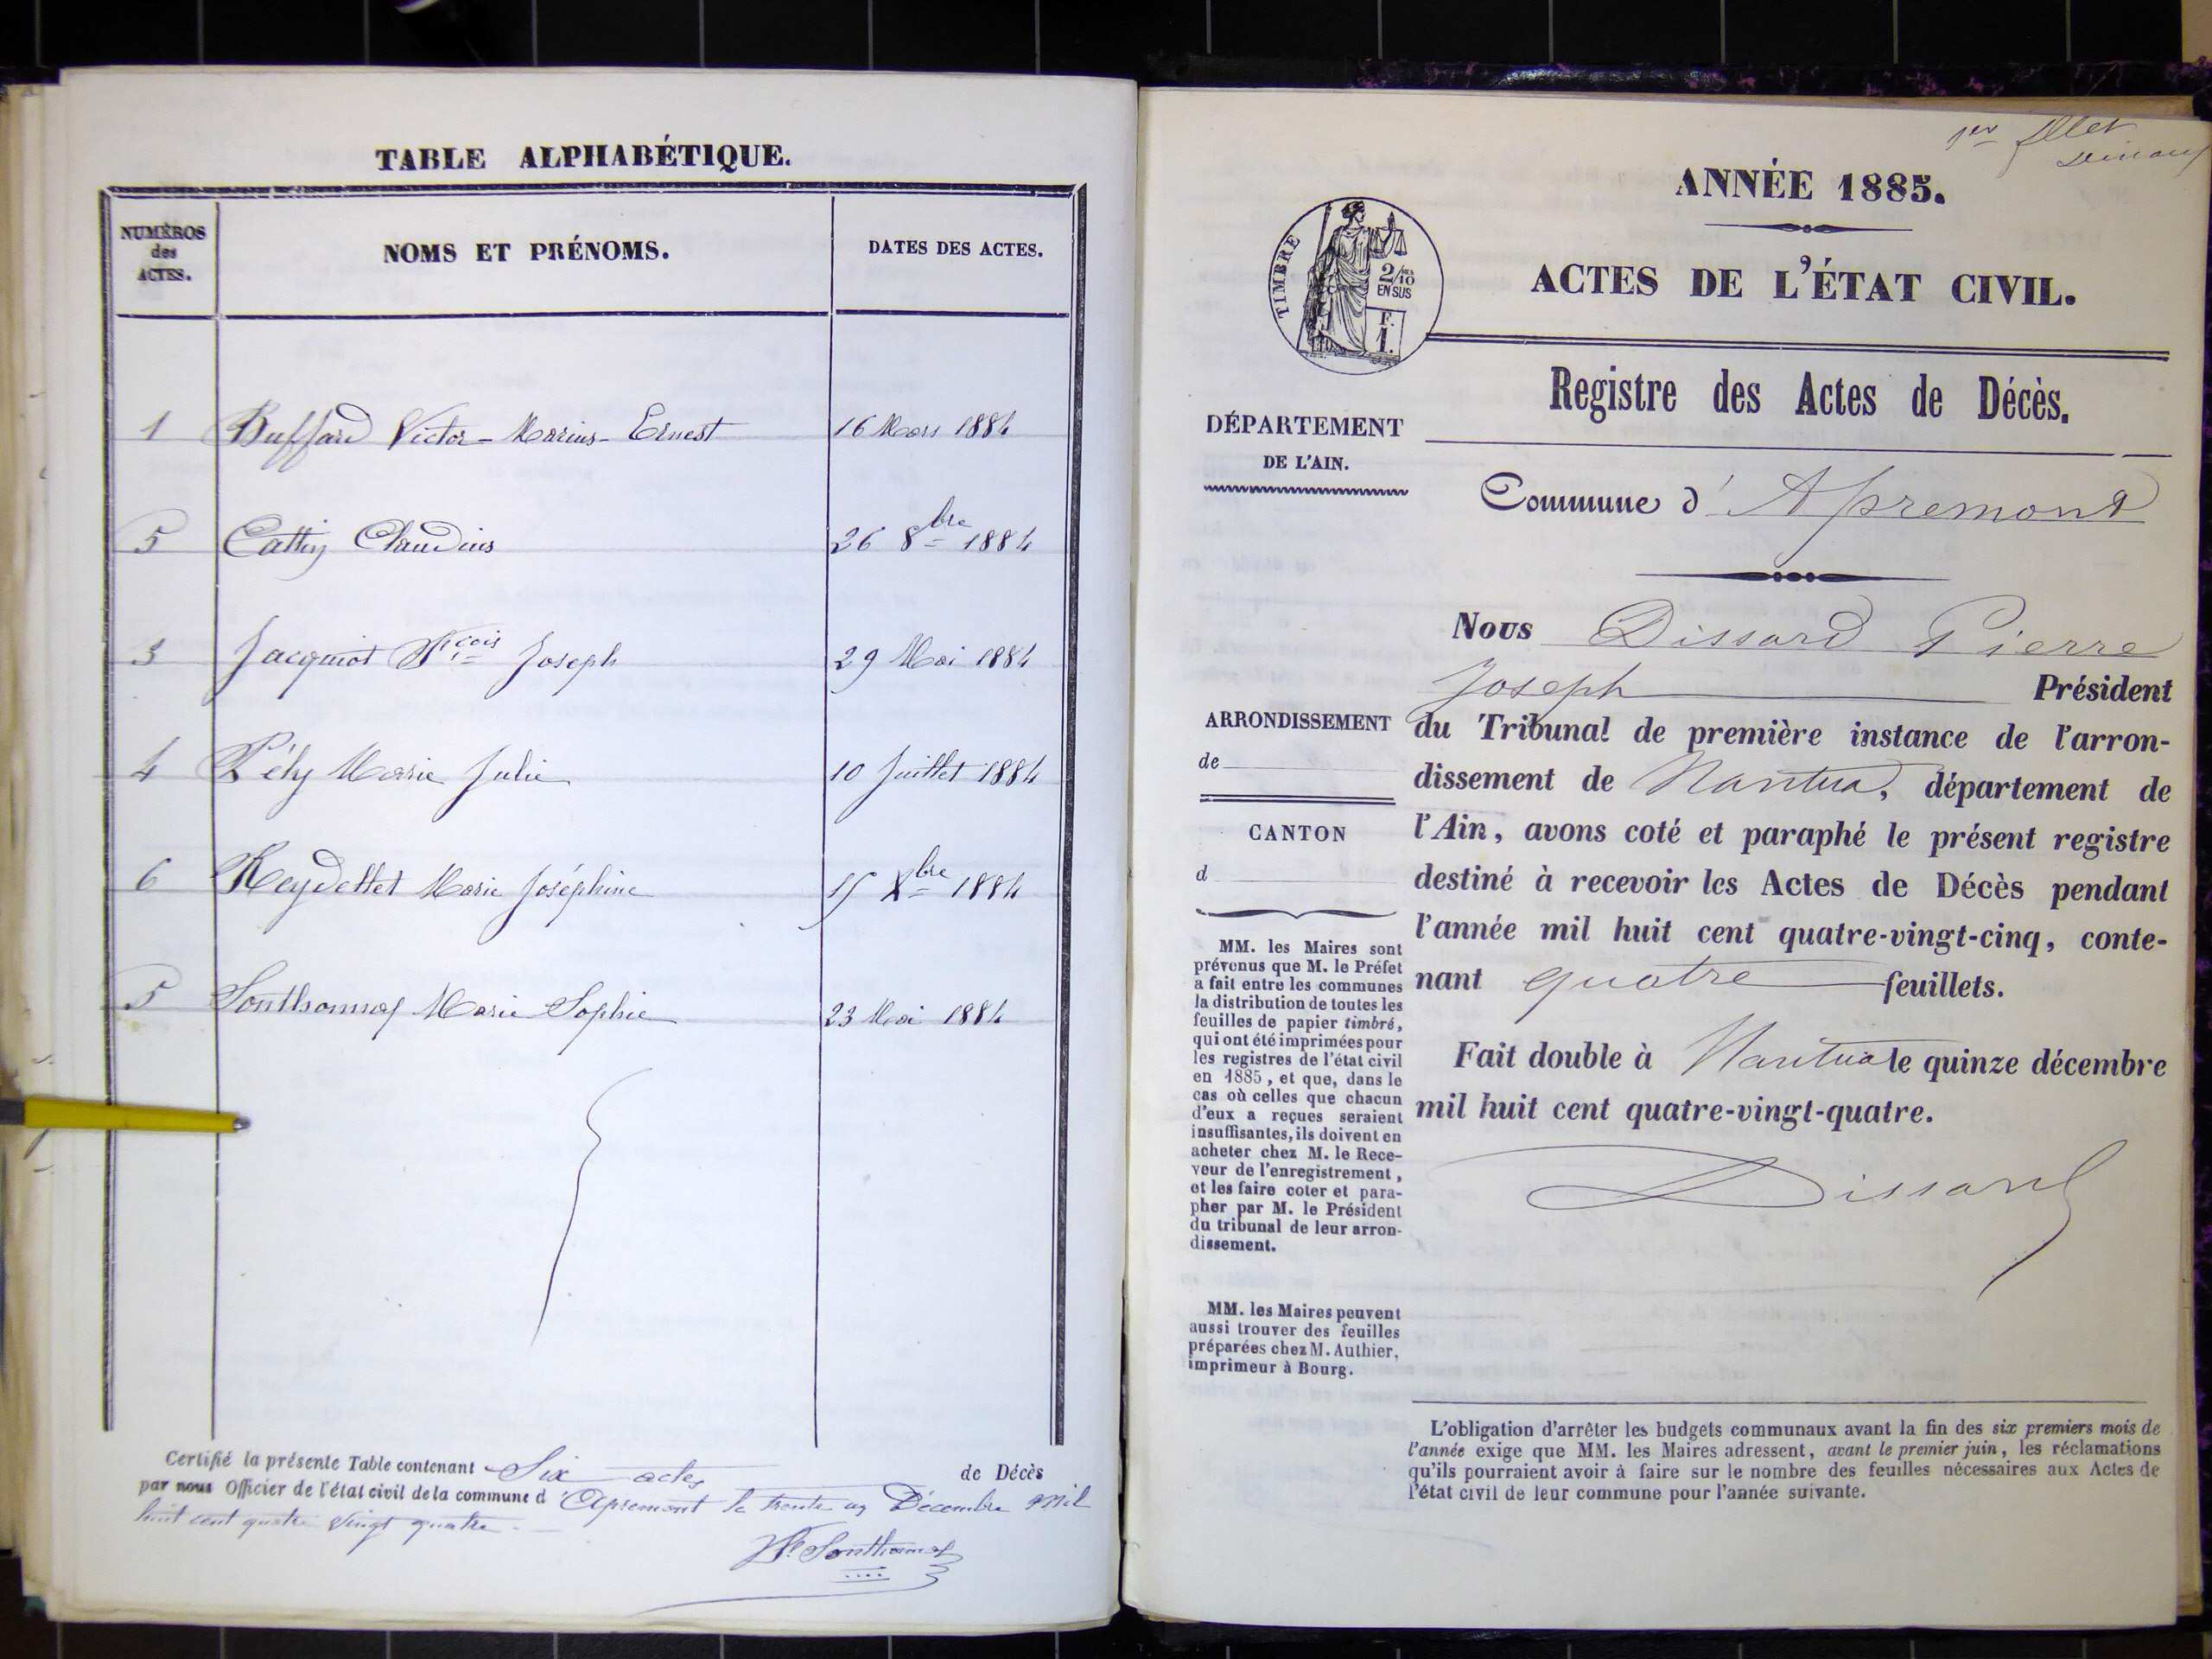 TABLE ALPHABÉTIQUE.
NUMÉROS
des
ACTES.
NOMS ET PRÉNOMS.
DATES DES ACTES.
1 Buffard Victor-Marius-Ernest 16 Mars 1884
5 Cattin Claudius 26 8bre 1884
3 Jacquiot Fçois Joseph 29 Mai 1884
4 Pély Marie Julie 10 Juillet 1884
6 Reydellet Marie Joséphine 15 Xbre 1884
Sonthonnax Marie Sophie 23 Mai 1884
Certifié la présente Table contenant Six actes de Décès
par nous Officier de l'état civil de la commune d'Apremont le trente un Décembre mil
huit cent quatre vingt quatre
Sonthonnax
1er
ANNÉE 1885.
TIMBRE
2/10
EN SUS
F.
1.
ACTES DE L'ÉTAT CIVIL.
Registre des Actes de Décès.
DÉPARTEMENT
DE L'AIN.
Commune d'Apremont
Nous Dissard Pierre
Joseph Président
du Tribunal de première instance de l'arron-
dissement de Nantua, département de
l'Ain, avons coté et paraphé le présent registre
destiné à recevoir les Actes de Décès pendant
l'année mil huit cent quatre-vingt-cinq, conte-
nant quatre feuillets.
Fait double à Nantua le quinze décembre
mil huit cent quatre-vingt-quatre.
Dissard
ARRONDISSEMENT
de
CANTON
d
MM. les Maires sont
prévenus que M. le Préfet
a fait entre les communes
la distribution de toutes les
feuilles de papier timbré,
qui ont été imprimées pour
les registres de l'état civil
en 1885, et que, dans le
cas où celles que chacun
d'eux a reçues seraient
insuffisantes, ils doivent en
acheter chez M. le Rece-
veur de l'enregistrement,
et les faire coter et para-
pher par M. le Président
du tribunal de leur arron-
dissement.
MM. les Maires peuvent
aussi trouver des feuilles
préparées chez M. Authier,
imprimeur à Bourg.
L'obligation d'arrêter les budgets communaux avant la fin des six premiers mois de
l'année exige que MM. les Maires adressent, avant le premier juin, les réclamations
qu'ils pourraient avoir à faire sur le nombre des feuilles nécessaires aux Actes de
l'état civil de leur commune pour l'année suivante.